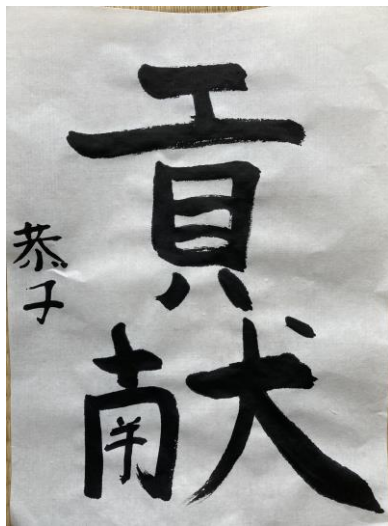 貢献
恭子